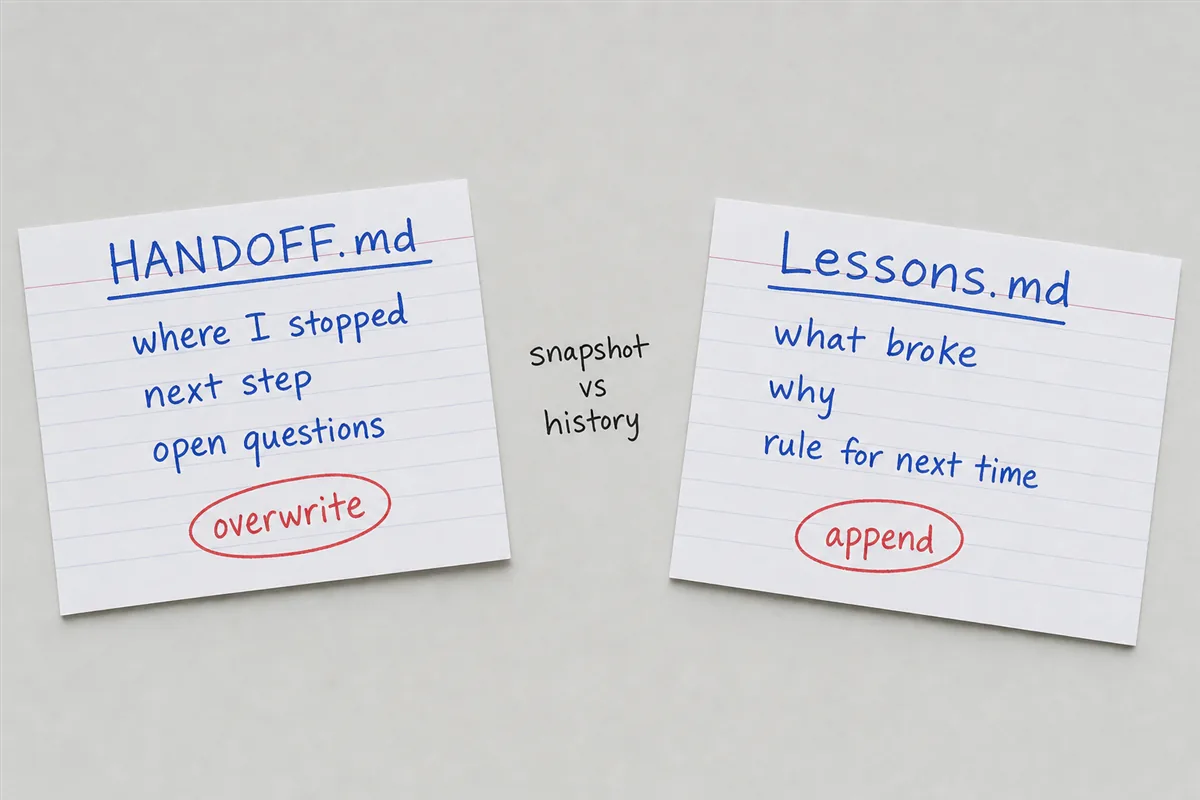 HANDOFF.md
where I stopped
next step
open questions
overwrite
snapshot
vs
history
Lessons.md
what broke
why
rule for next time
append